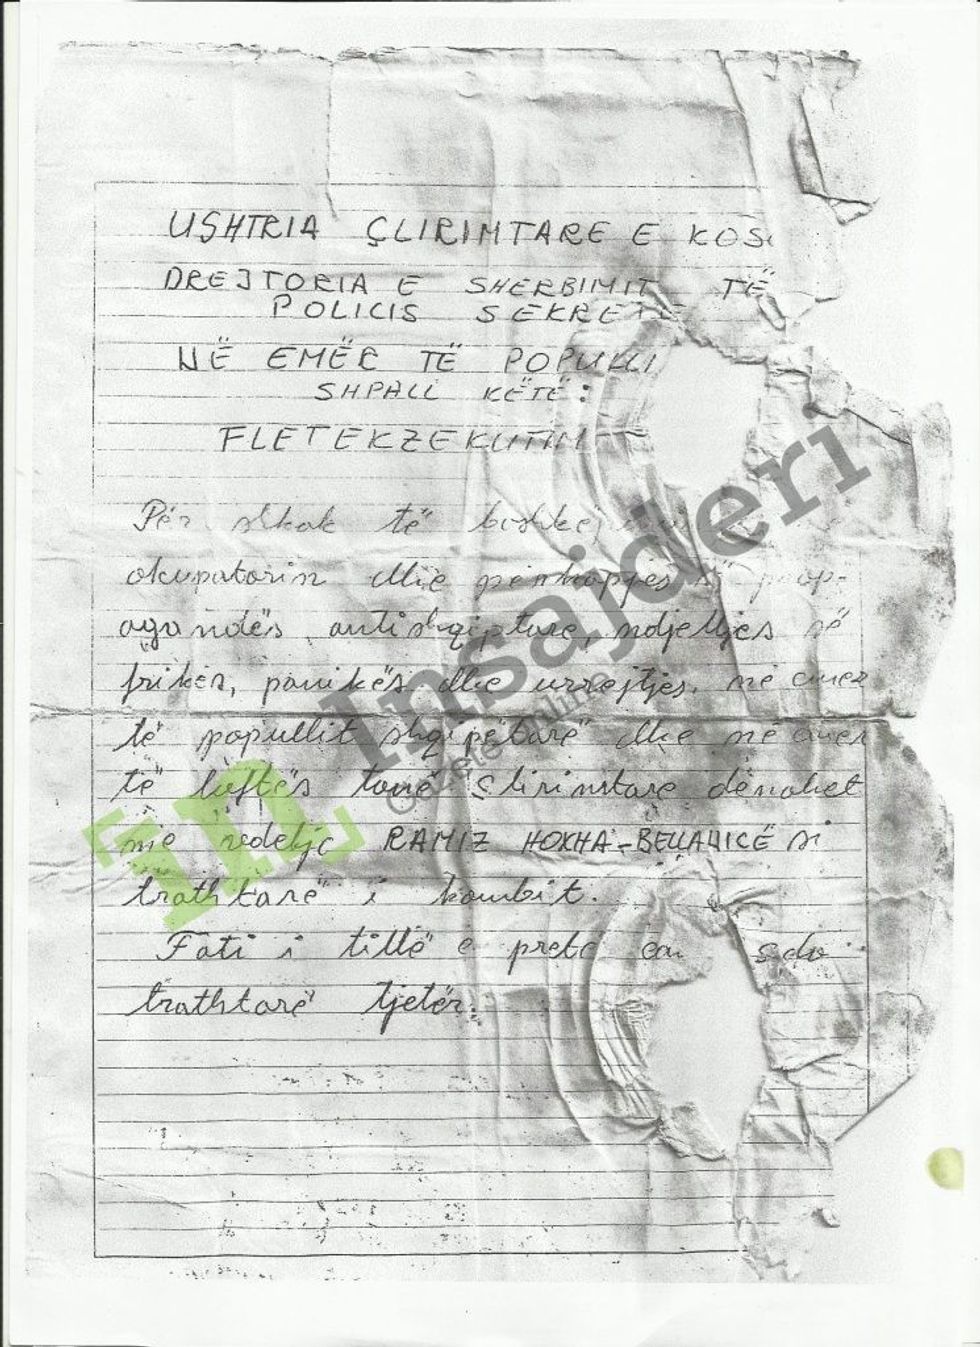 USHTRIA ÇLIRIMTARE E KOS
DREJTORIA E SHERBIMIT TË
POLICIS SEKRETE
NË EMËR TË POPULLI
SHPALL KËTË:
FLETEKZEKUTIM
Për shkak të
okupatorin dhe përkrapjes së prop-
agandës antishqiptare, ndjelljes së
frikës, panikës dhe urrejtjes, në emer
të popullit shqipëtarë dhe në emer
të luftës tonë çlirimtare dënohet
me vdekje RAMIZ HOXHA-BELLANICË si
trathtarë i kombit.
Fati i tillë e pret çdo
trathtarë tjetër.
Insajderi
Gazetë Online